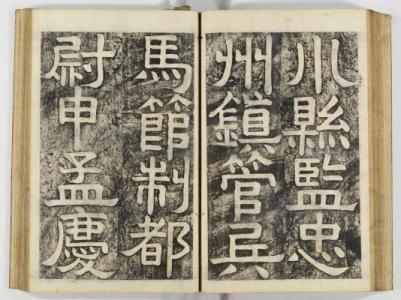 川縣監忠
州鎮管兵
馬節制都
尉申孟慶